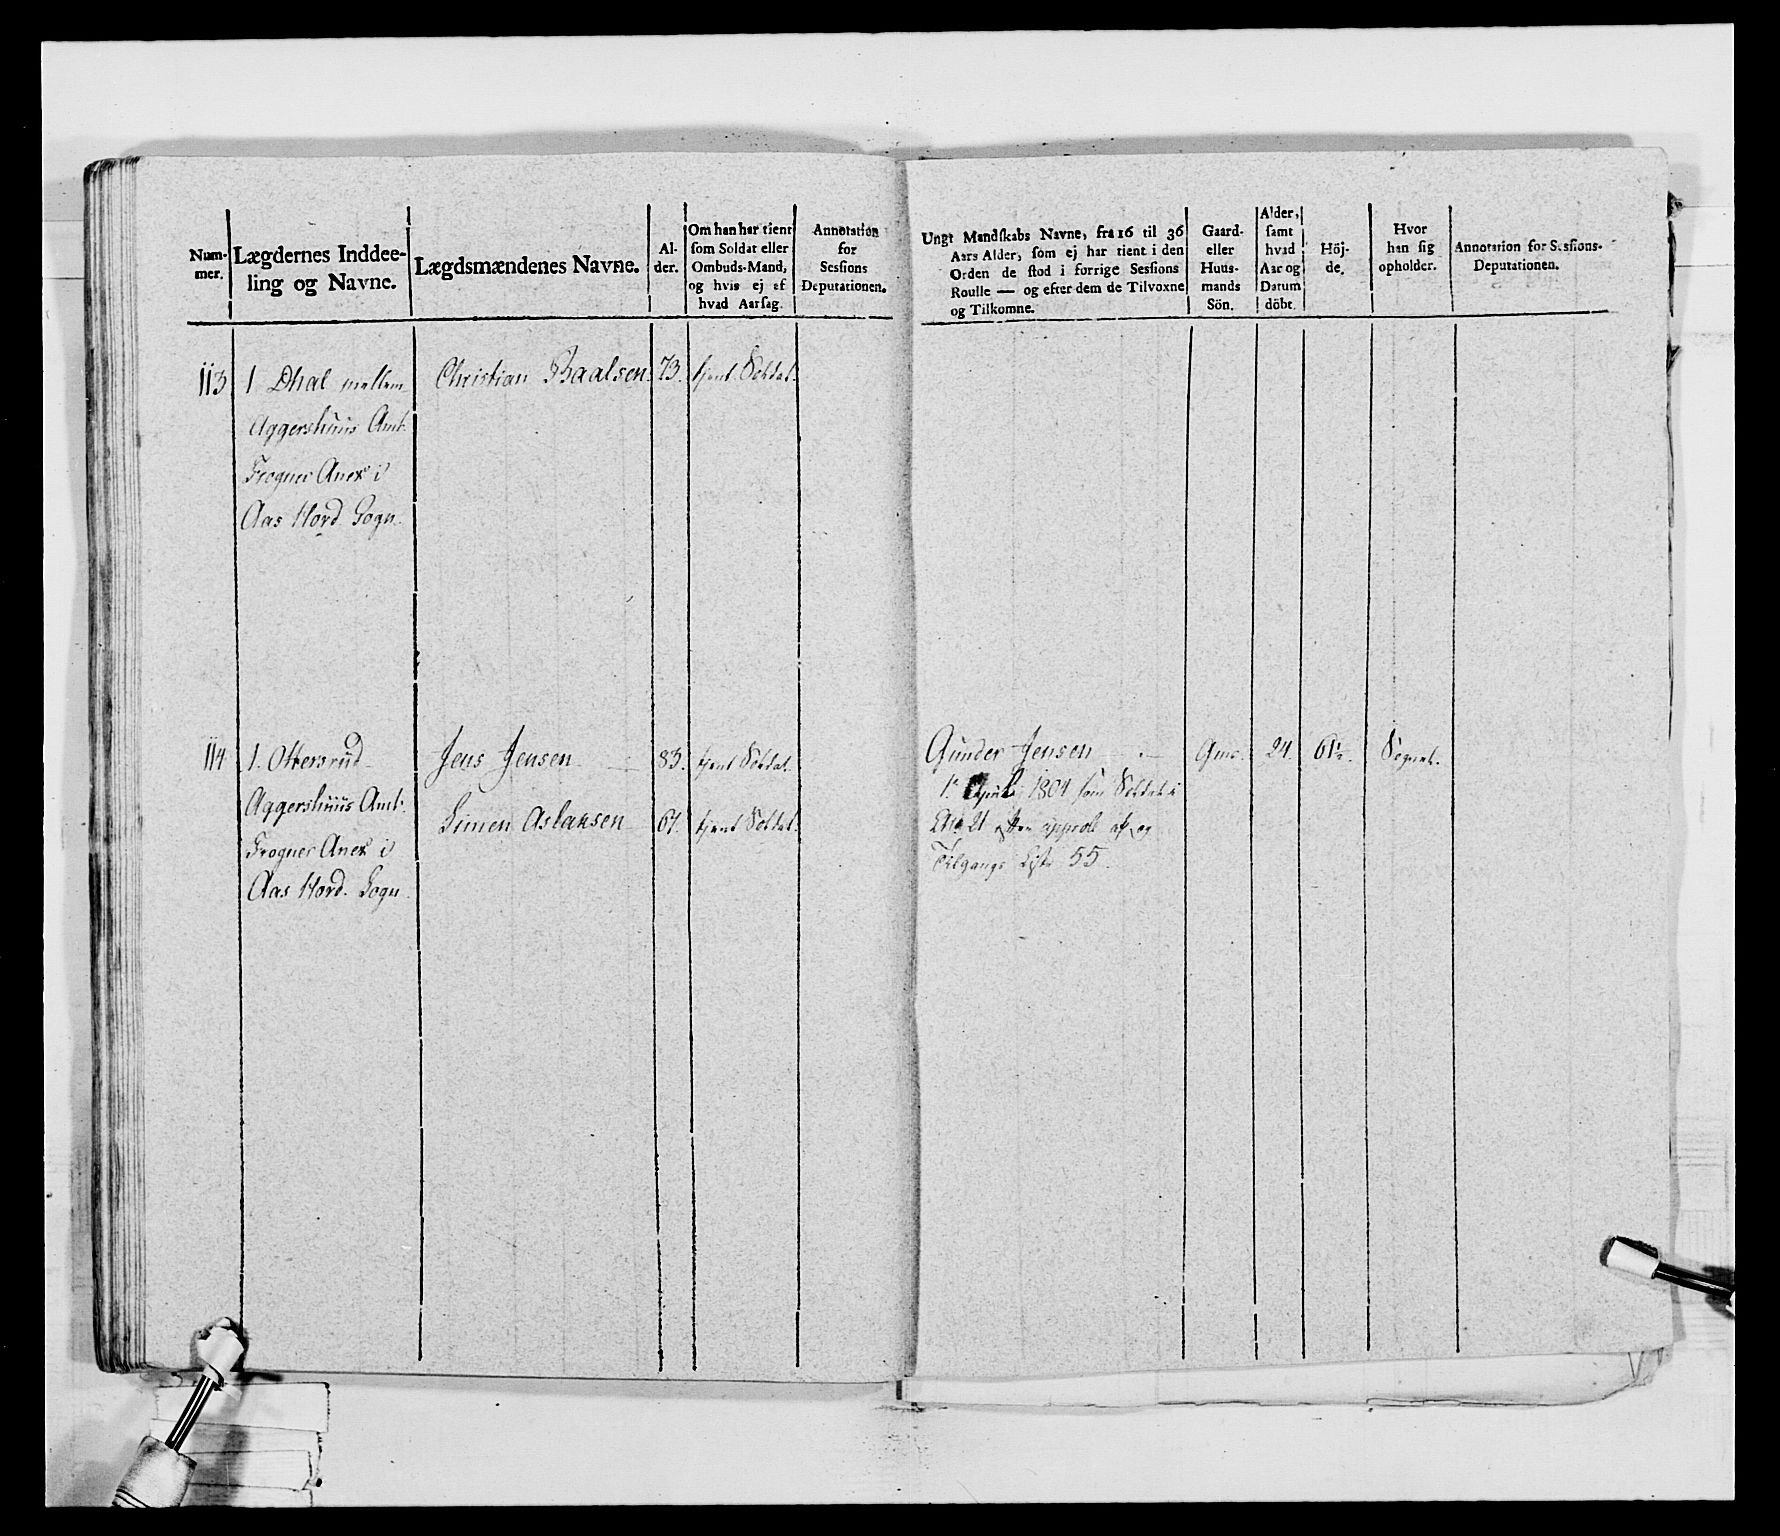 Num-
mer.
Lægdernes Inddee-
ling og Navne.
Lægdsmændenes Navne.
Al-
der.
Om han har tient
som Soldat eller
Ombuds-Mand,
og hvis ej af
hvad Aarsag.
Annotation
for
Sessions
Deputationen.
Ungt Mandskabs Navne, fra 16 til 36
Aars Alder, som ej har tient i den
Orden de stod i forrige Sessions
Roulle — og efter dem de Tilvoxne
og Tilkomne.
Gaard-
eller
Huus-
mands
Sön.
Alder,
samt
hvad
Aar og
Datum
döbt.
Höj-
de.
Hvor
han sig
opholder.
Annotation for Sessions-
Deputationen.
113 1 Dhal mellem Christian Baalsen 73. tjent Soldat.
Aggershuus Amt.
Frogner Anex i
Aas Hord Sogn
114 1. Ottersrud Jens Jensen 83. tjent Soldat. Gunder Jensen Gms. 24. 61½. Sognet.
Aggershuus Amt. Simen Aslaksen 67. tjent Soldat. 1e April 1804 som Soldat i
Frogner Anex i og
Tilgangs Liste 55.
Aas Hord. Sogn